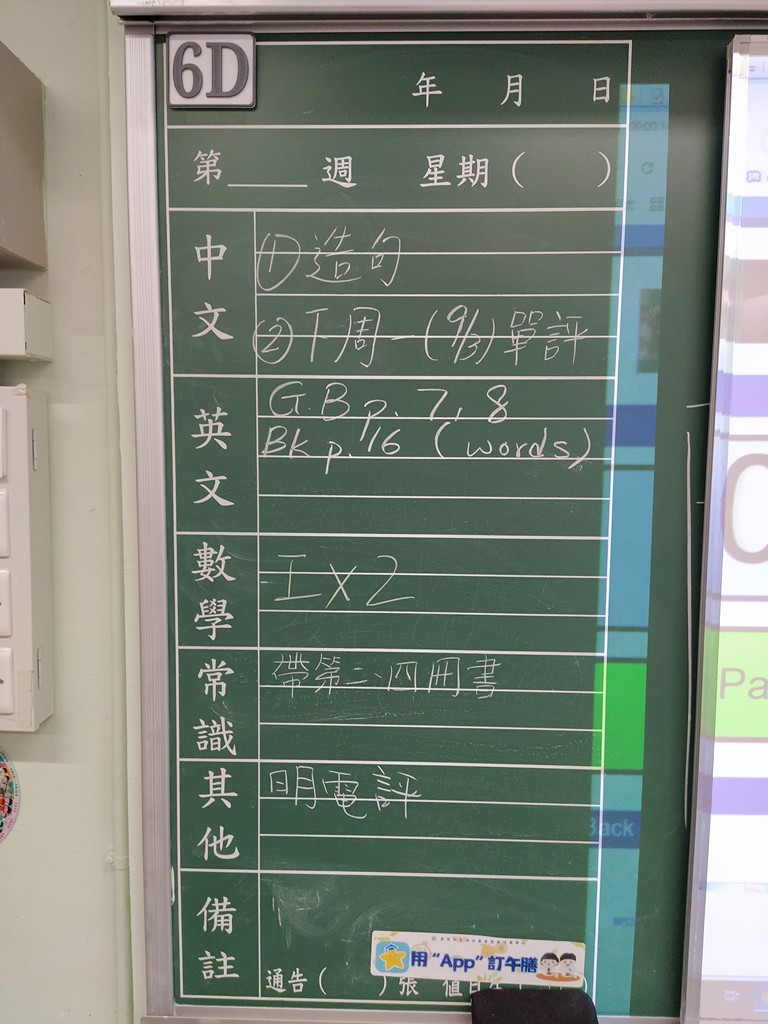 6D
年 月 日
第____週 星期( )
中文
①造句
②下周一(9/3)單評
英文
G.B p. 7, 8
BK p. 116 (words)
數學
工 x 2
常識
帶第二、四冊書
其他
明電評
備註
用“App”訂午膳
通告( )張 值日生
Back
Pa